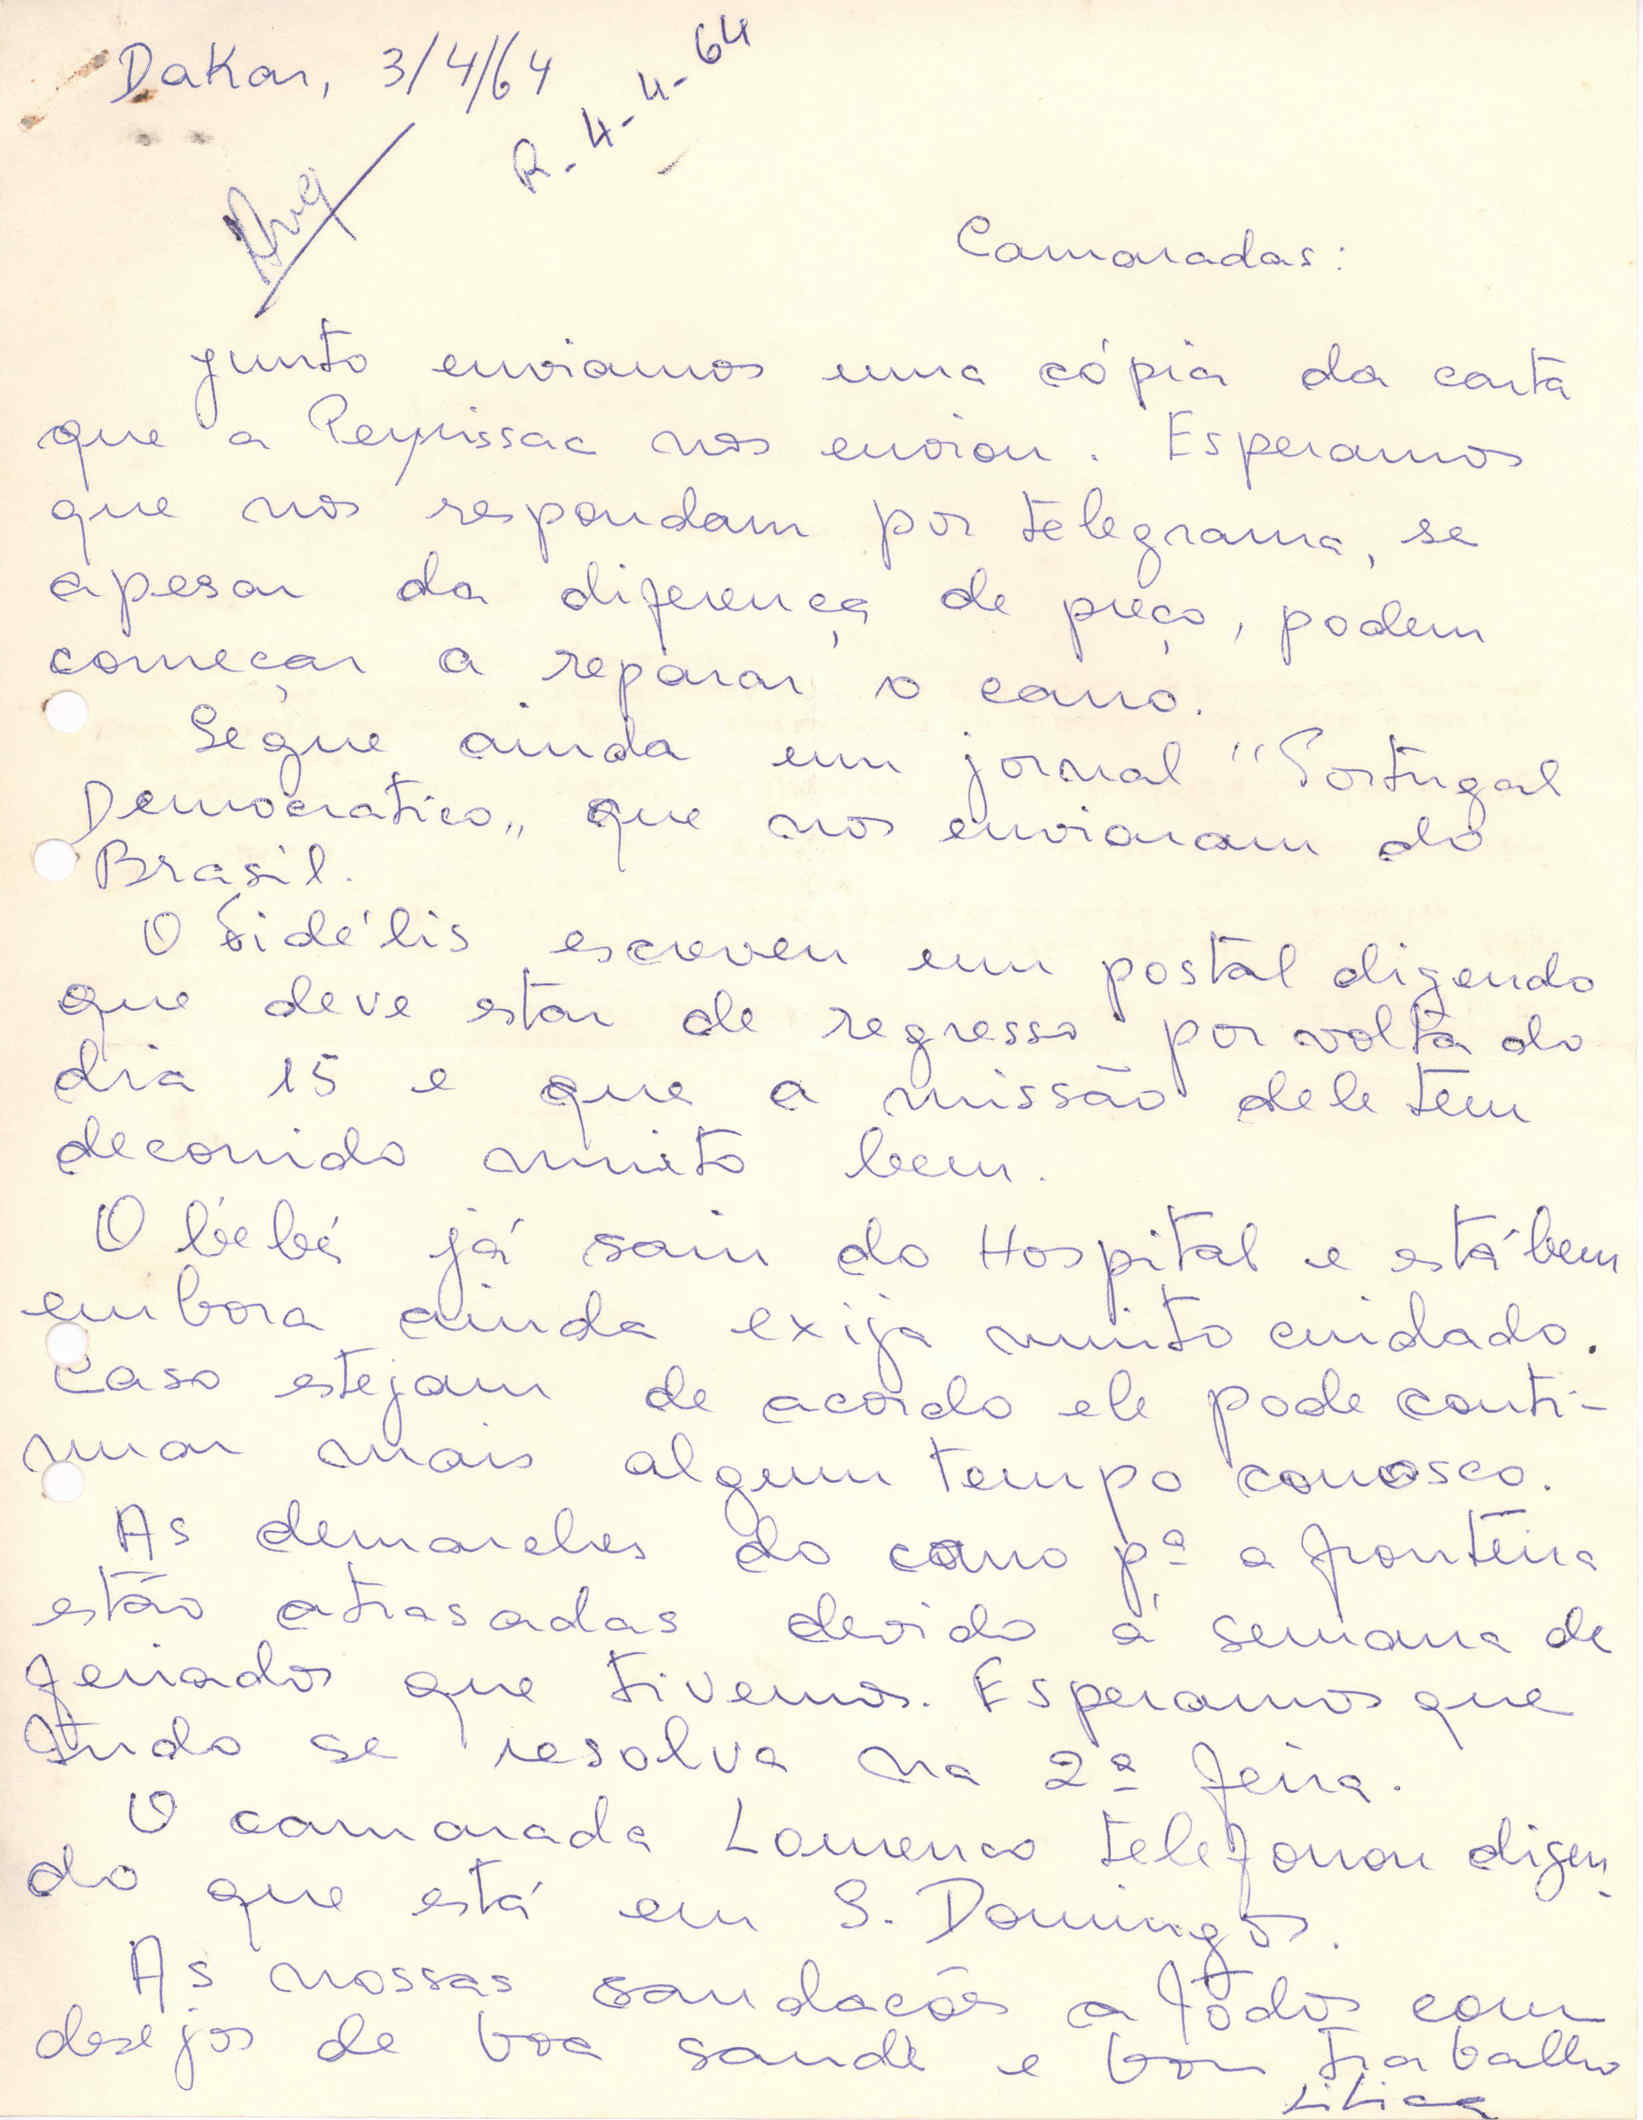 Dakar, 3/4/64
R. 4-4-64
Arq
Camaradas:
Junto enviamos uma cópia da carta
que a Peyrissac nos enviou. Esperamos
que nos respondam por telegrama, se
apesar da diferença de preço, podem
começar a reparar o carro.
Segue ainda um jornal "Portugal
Democratico" que nos enviaram do
Brasil.
O Fidélis escreveu um postal dizendo
que deve estar de regresso por volta do
dia 15 e que a missão dele tem
decorrido muito bem.
O bébé já saiu do Hospital e está bem
embora ainda exija muito cuidado.
Caso estejam de acordo ele pode conti-
nuar mais algum tempo conosco.
As demarches do carro pª a fronteira
estão atrasadas devido á semana de
feriados que tivemos. Esperamos que
tudo se resolva na 2ª feira.
O camarada Lourenco telefonou dizen-
do que está em S. Domingos.
As nossas saudacões a todos com
desejos de boa saude e bom trabalho
Lilica